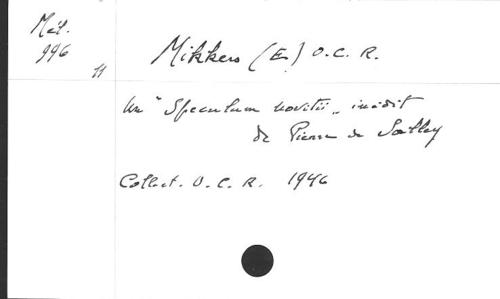 Mél.
996
11
Mikkers (E.) O.C.R.
Un "Speculum novitii" inédit
de Pierre de
Collect. O.C.R. 1946